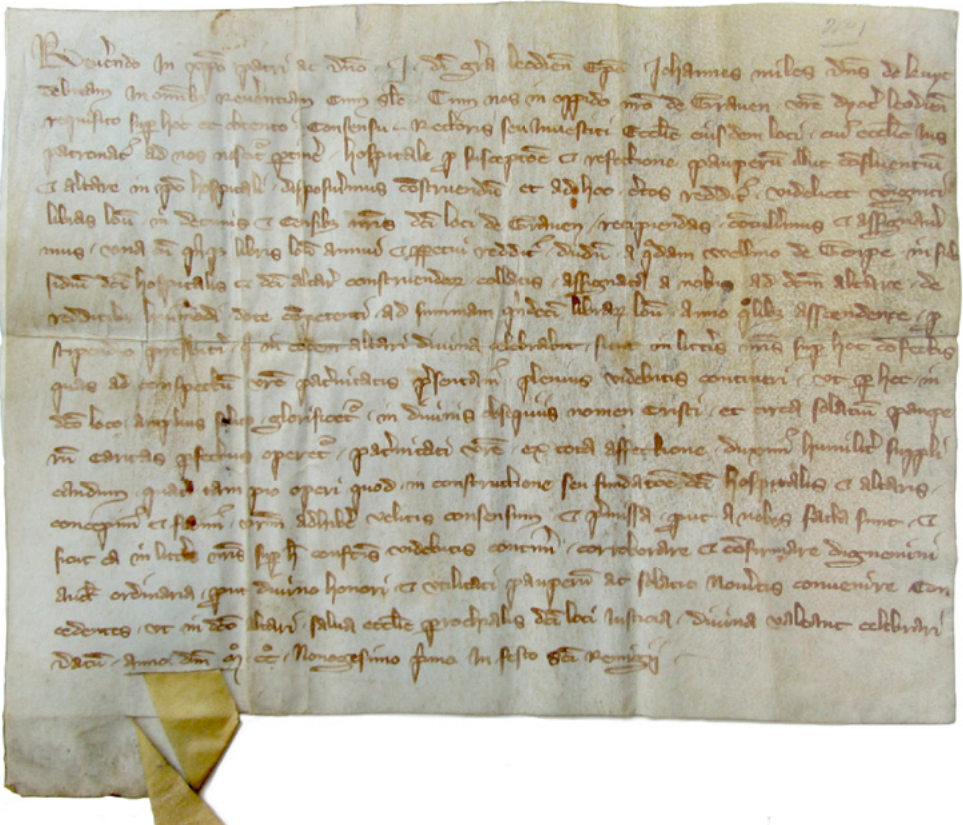 Reverendo in xpo patri ac dno J. di gra leodien Epo Johannes miles dns de
debitam in omnibz reverentiam cum Cum nos in oppido nro de Graven vre dyoc leodien
requisito sup hoc et obtento consensu Rectoris seu investiti Ecclie eiusdem loci cui ecclie ius
patronat ad nos noscit ptinere hospitale p susceptioe et refectione pauperu illuc confluentiu
et altare in ipo hospitali disposuimus construendu et ad hoc ctos reddit videlicet viginti
libras lou in decimis et censibz nris dci loci de Graven recipiendas contulimus et assignavi
mus una cu libris lou annui et ppetui reddit dudu a qdam Wellino de Genpe in sub
sidiu dci hospitalis et dci altaris construendor collatis assignatis a nobis ad dcm altare de
redditibz hmodi dote competenti ad summam qndeci librar lou anno qolibz ascendente p
stipendio presbiteri q in eodem altari divina celebrabit sicut in littis nris sup hoc confectis
quas ad conspectu vre patnitatis psentam plenius videbitis contineri ut p hoc in
dco loco amplius glorificet in divinis obsequiis nomen cristi et circa solatiu paupe
ru caritas pfectius operet patnitati vre ex tota affectione duxim humilit suppli
candum quat tam pio operi quod in constructione seu fundatoe dci hospitalis et altaris
concepim et vrm adhibe velitis consensum et pmissa put a nobis facta sunt et
sicut ea in littis nris sup h confectis videbitis contini corroborare et cofirmare dignemini
auct ordinaria put divino honori et utilitati pauperu ac solatio noveritis convenire Con
cedentes ut in dco altari salva ecclie prochialis dci loci iusticia divina valeant celebrari
datu anno dni M CC Nonogesimo pimo in festo sci Remigii